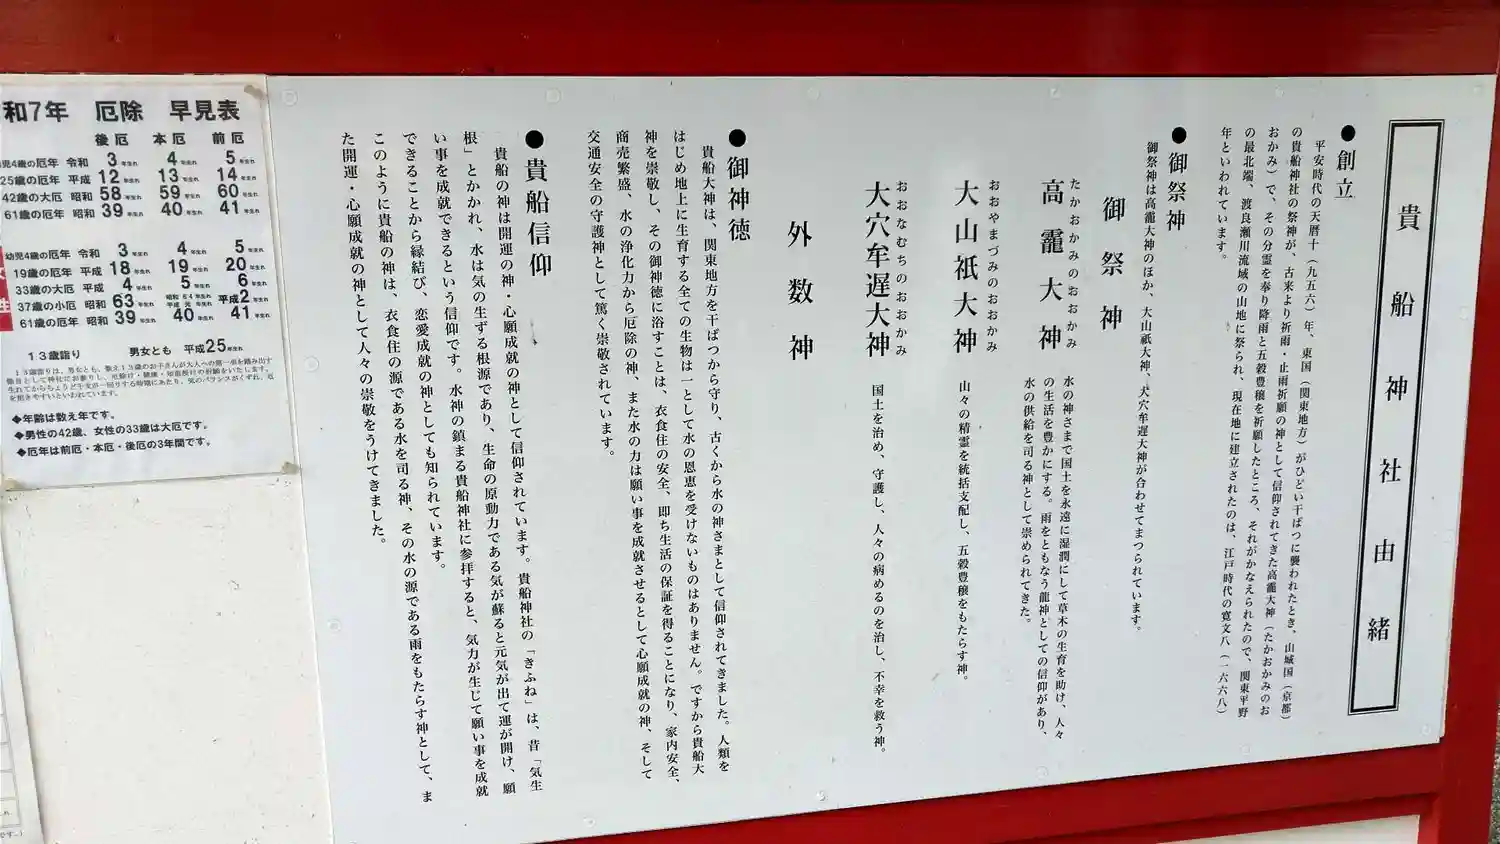 貴船神社由緒
●創立
平安時代の天暦十(九五六)年、東国(関東地方)がひどい干ばつに襲われたとき、山城国(京都)
の貴船神社の祭神が、古来より祈雨・止雨祈願の神として信仰されてきた高龗大神(たかおかみのお
おかみ)で、その分霊を奉り降雨と五穀豊穣を祈願したところ、それがかなえられたので、関東平野
の最北端、渡良瀬川流域の山地に祭られ、現在地に建立されたのは、江戸時代の寛文八(一六六八)
年といわれています。
●御祭神
御祭神は高龗大神のほか、大山祇大神、大穴牟遅大神が合わせてまつられています。
御祭神
たかおかみのおおかみ
高龗大神 水の神さまで国土を永遠に湿潤にして草木の生育を助け、人々
の生活を豊かにする。雨をともなう龍神としての信仰があり、
水の供給を司る神として崇められてきた。
おおやまづみのおおかみ
大山祇大神 山々の精霊を統括支配し、五穀豊穣をもたらす神。
おおなむちのおおかみ
大穴牟遅大神 国土を治め、守護し、人々の病めるのを治し、不幸を救う神。
外数神
●御神徳
貴船大神は、関東地方を干ばつから守り、古くから水の神さまとして信仰されてきました。人類を
はじめ地上に生育する全ての生物は一として水の恩恵を受けないものはありません。ですから貴船大
神を崇敬し、その御神徳に浴すことは、衣食住の安全、即ち生活の保証を得ることになり、家内安全、
商売繁盛、水の浄化力から厄除の神、また水の力は願い事を成就させるとして心願成就の神、そして
交通安全の守護神として篤く崇敬されています。
●貴船信仰
貴船の神は開運の神・心願成就の神として信仰されています。貴船神社の「きふね」は、昔「気生
根」とかかれ、水は気の生ずる根源であり、生命の原動力である気が蘇ると元気が出て運が開け、願
い事を成就できるという信仰です。水神の鎮まる貴船神社に参拝すると、気力が生じて願い事を成就
できることから縁結び、恋愛成就の神としても知られています。
このように貴船の神は、衣食住の源である水を司る神、その水の源である雨をもたらす神として、ま
た開運・心願成就の神として人々の崇敬をうけてきました。
和7年 厄除 早見表
後厄 本厄 前厄
児4歳の厄年 令和 3年生れ 4年生れ 5年生れ
25歳の厄年 平成 12年生れ 13年生れ 14年生れ
42歳の大厄 昭和 58年生れ 59年生れ 60年生れ
61歳の厄年 昭和 39年生れ 40年生れ 41年生れ
幼児4歳の厄年 令和 3年生れ 4年生れ 5年生れ
19歳の厄年 平成 18年生れ 19年生れ 20年生れ
33歳の大厄 平成 4年生れ 5年生れ 6年生れ
37歳の小厄 昭和 63年生れ 昭和64年生れ 平成元年生れ 平成2年生れ
61歳の厄年 昭和 39年生れ 40年生れ 41年生れ
13歳詣り 男女とも 平成25年生れ
13歳詣りは、男女とも、数え13歳のお子さんが大人への第一歩を踏み出す
◆年齢は数え年です。
◆男性の42歳、女性の33歳は大厄です。
◆厄年は前厄・本厄・後厄の3年間です。